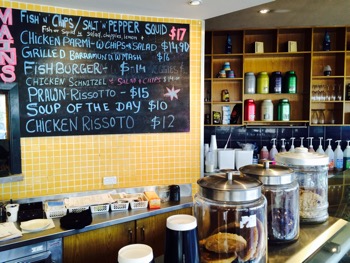 MAINS
FISH N' CHIPS / SALT N' PEPPER SQUID
$17
CHICKEN PARMI-W/CHIPS & SALAD $14.90
GRILLED BARRAMUNDI W/MASH $16
FISH BURGER - $14
CHICKEN SCHNITZEL & SALAD & CHIPS
PRAWN RISSOTTO - $15
SOUP OF THE DAY $10
CHICKEN RISSOTO $12